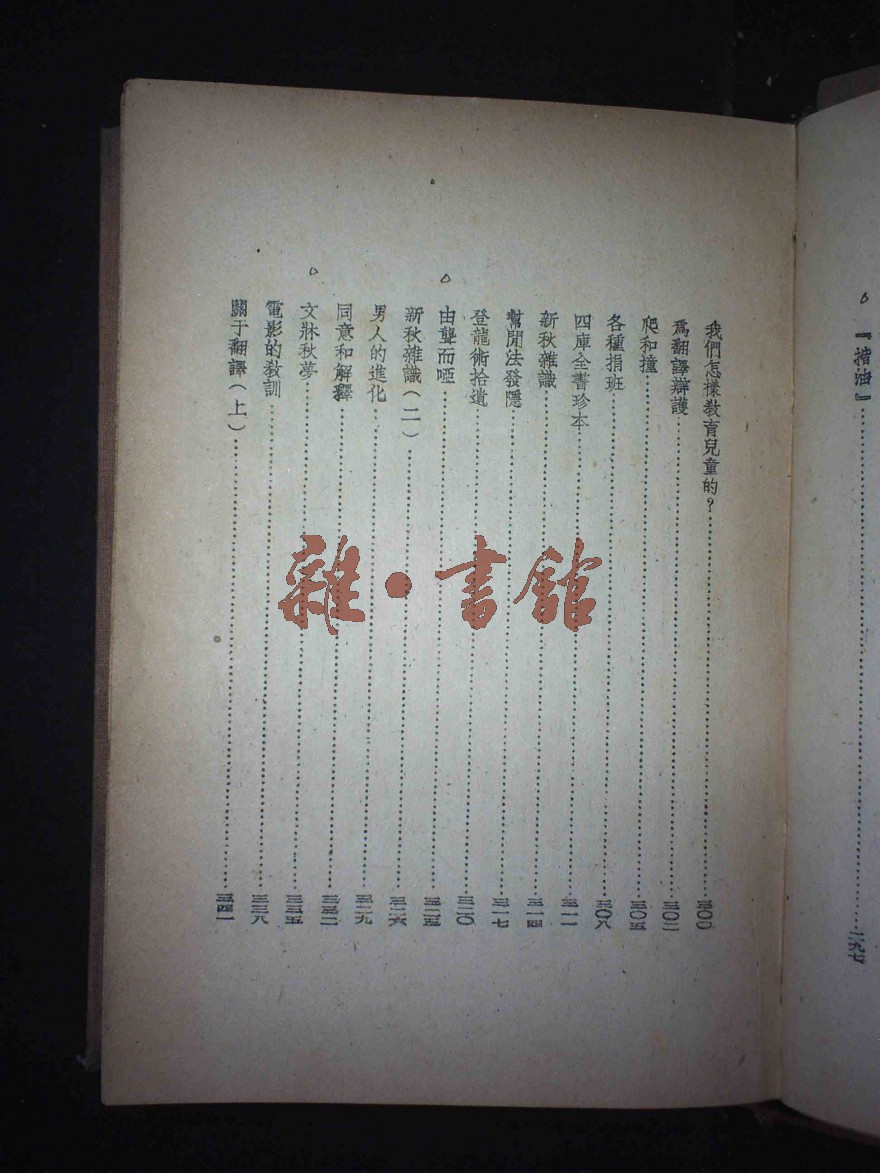 『揩油』……二九七
我們怎樣教育兒童的？……三〇〇
爲翻譯辯護……三〇二
爬和撞……三〇五
各種捐班……三〇八
四庫全書珍本……三一一
新秋雜識……三一四
幫閒法發隱……三一七
登龍術拾遺……三二〇
由聾而啞……三二五
新秋雜識（二）……三二六
男人的進化……三二九
同意和解釋……三三二
文牀秋夢……三三五
電影的教訓……三三八
關于翻譯（上）……三四一
雜·書館